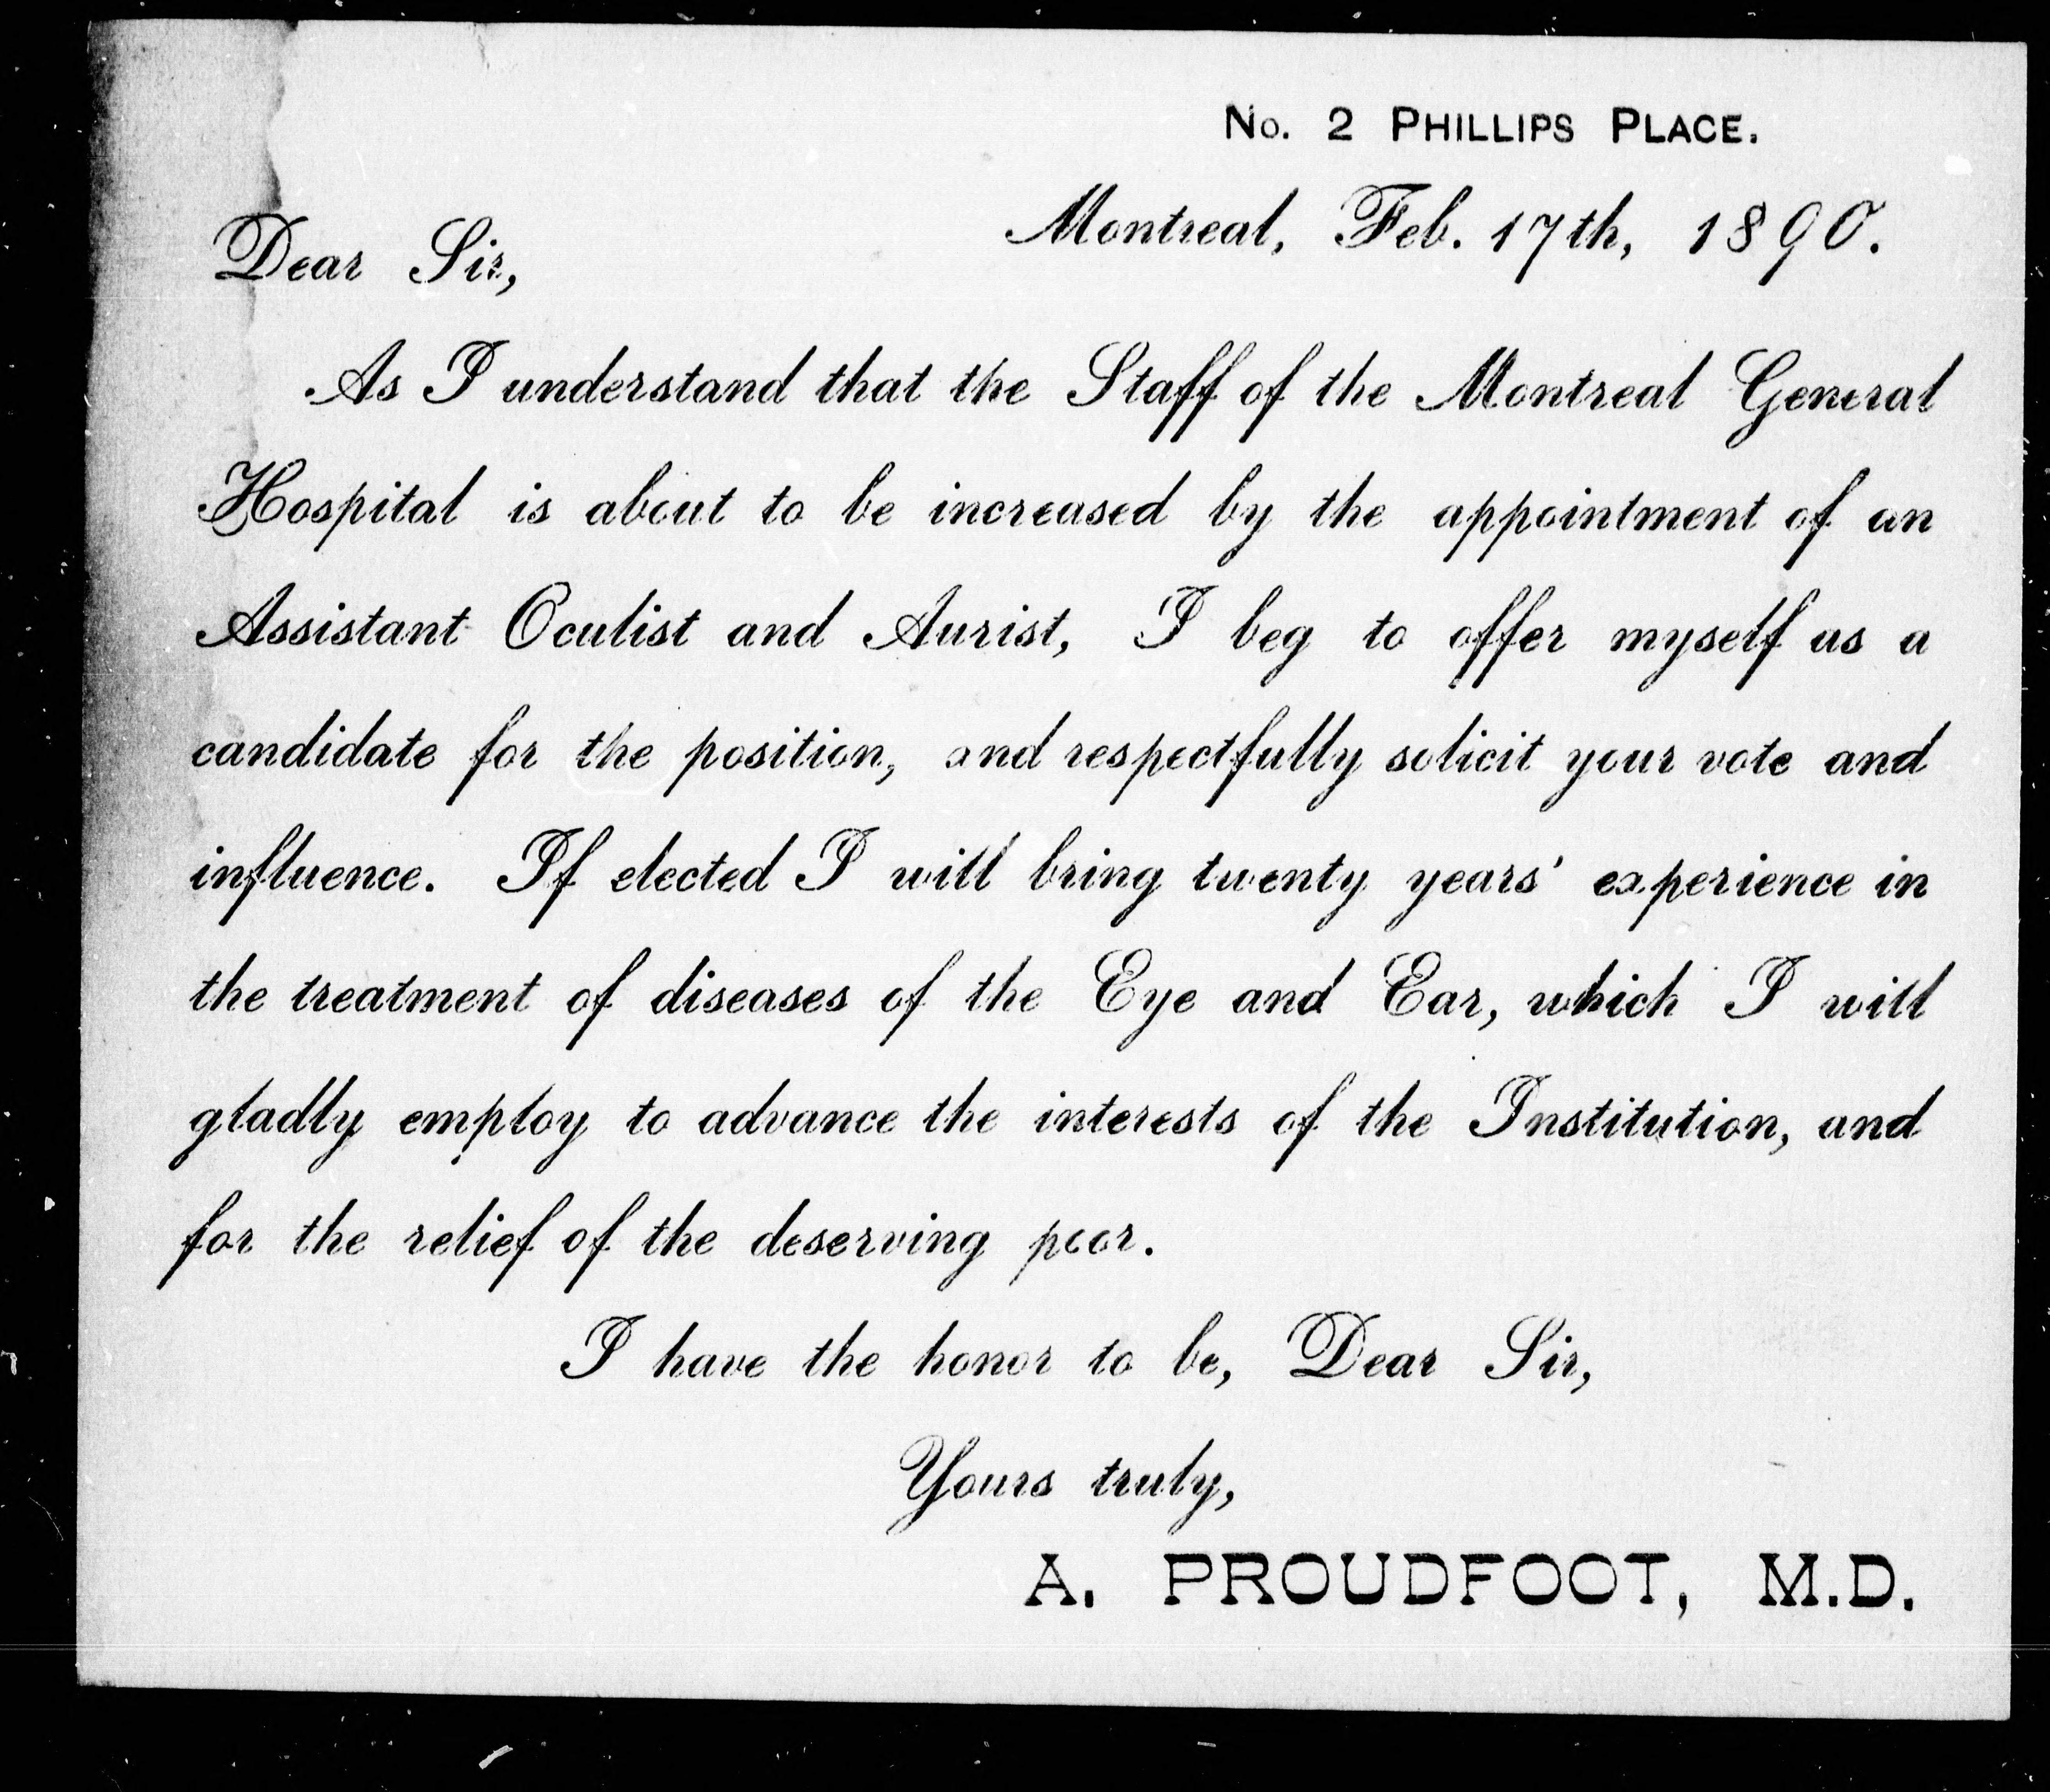 No. 2 PHILLIPS PLACE.
Montreal, Feb. 17th, 1890.
Dear Sir,
As I understand that the Staff of the Montreal General
Hospital is about to be increased by the appointment of an
Assistant Oculist and Aurist, I beg to offer myself as a
candidate for the position, and respectfully solicit your vote and
influence. If elected I will bring twenty years' experience in
the treatment of diseases of the Eye and Ear, which I will
gladly employ to advance the interests of the Institution, and
for the relief of the deserving poor.
I have the honor to be, Dear Sir,
Yours truly,
A. PROUDFOOT, M.D.